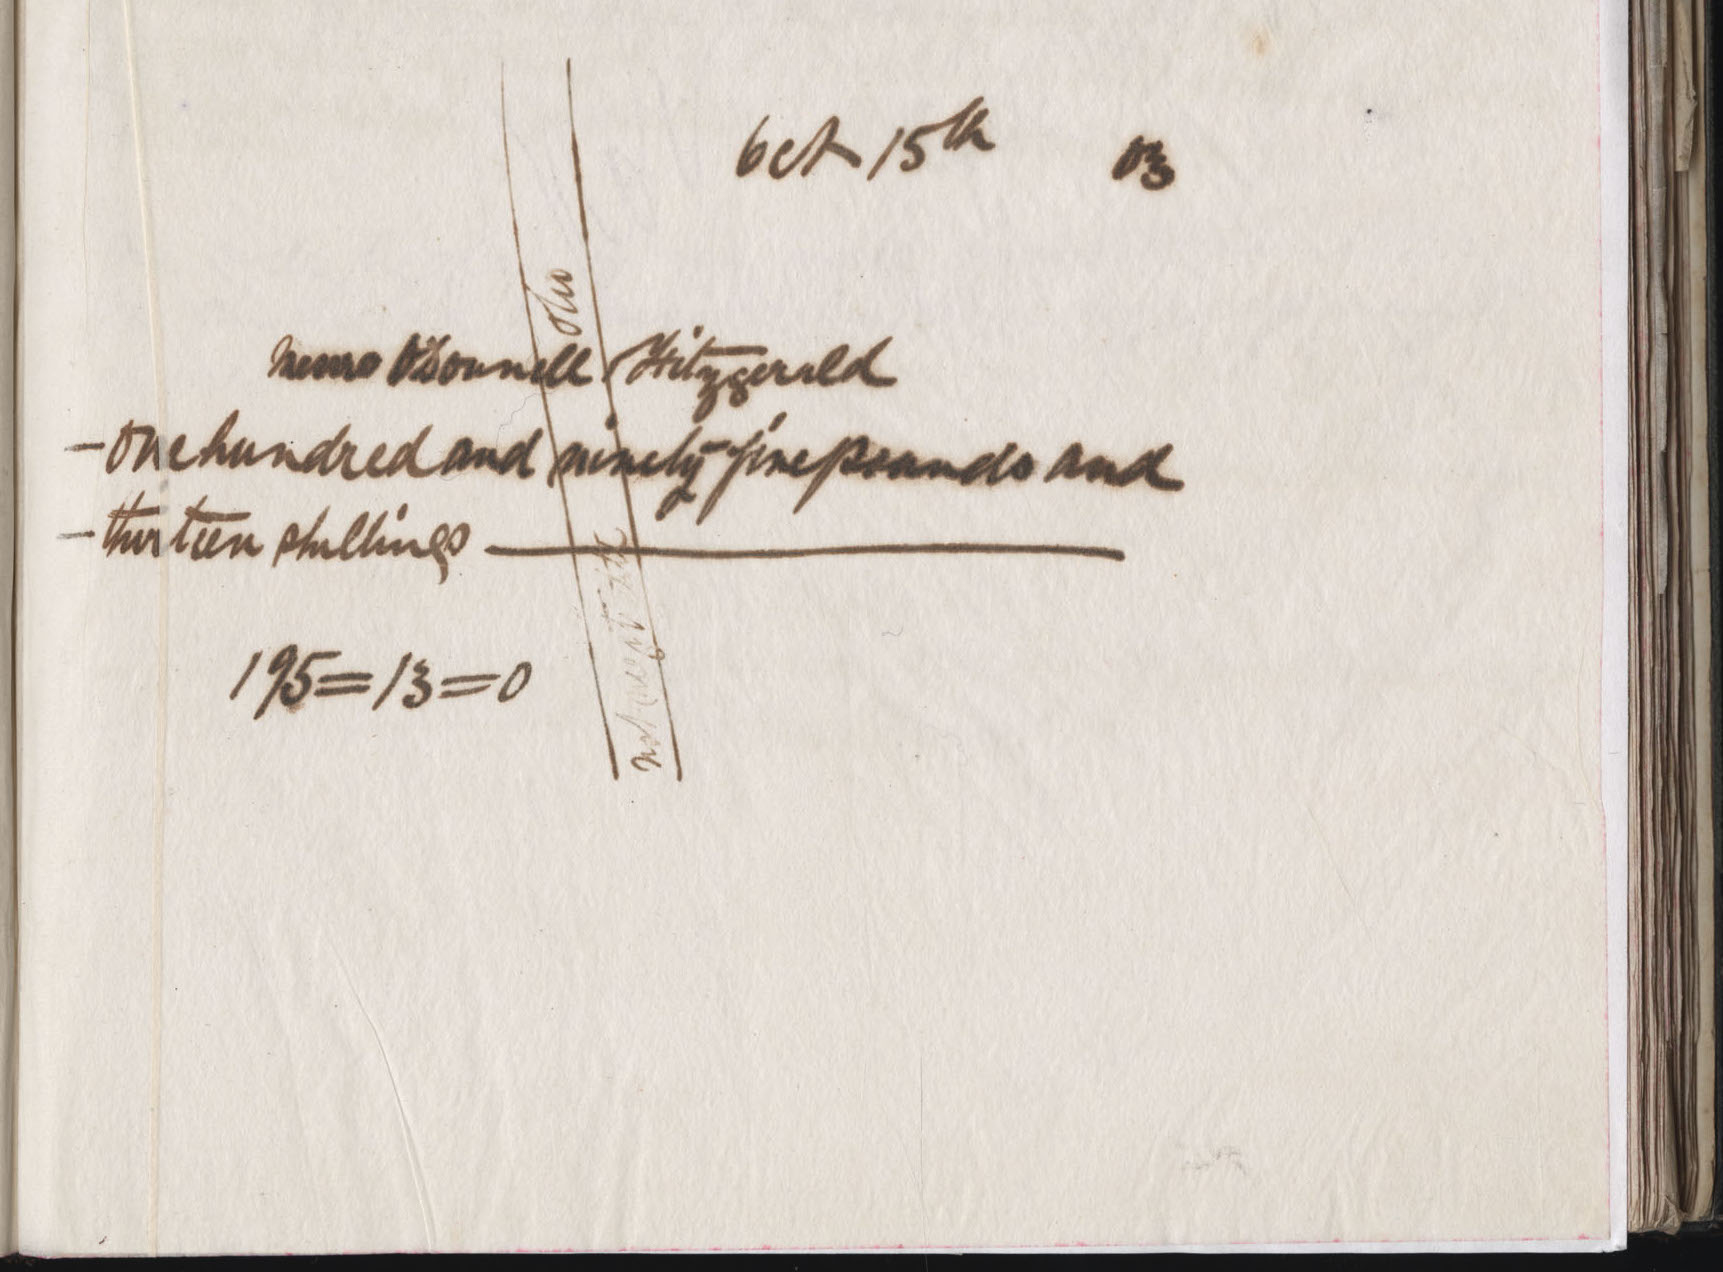 Oct 15th 03
Messrs O'Donnell Fitzgerald
- One hundred and ninety five pounds and
- thirteen shillings
195=13=0
not